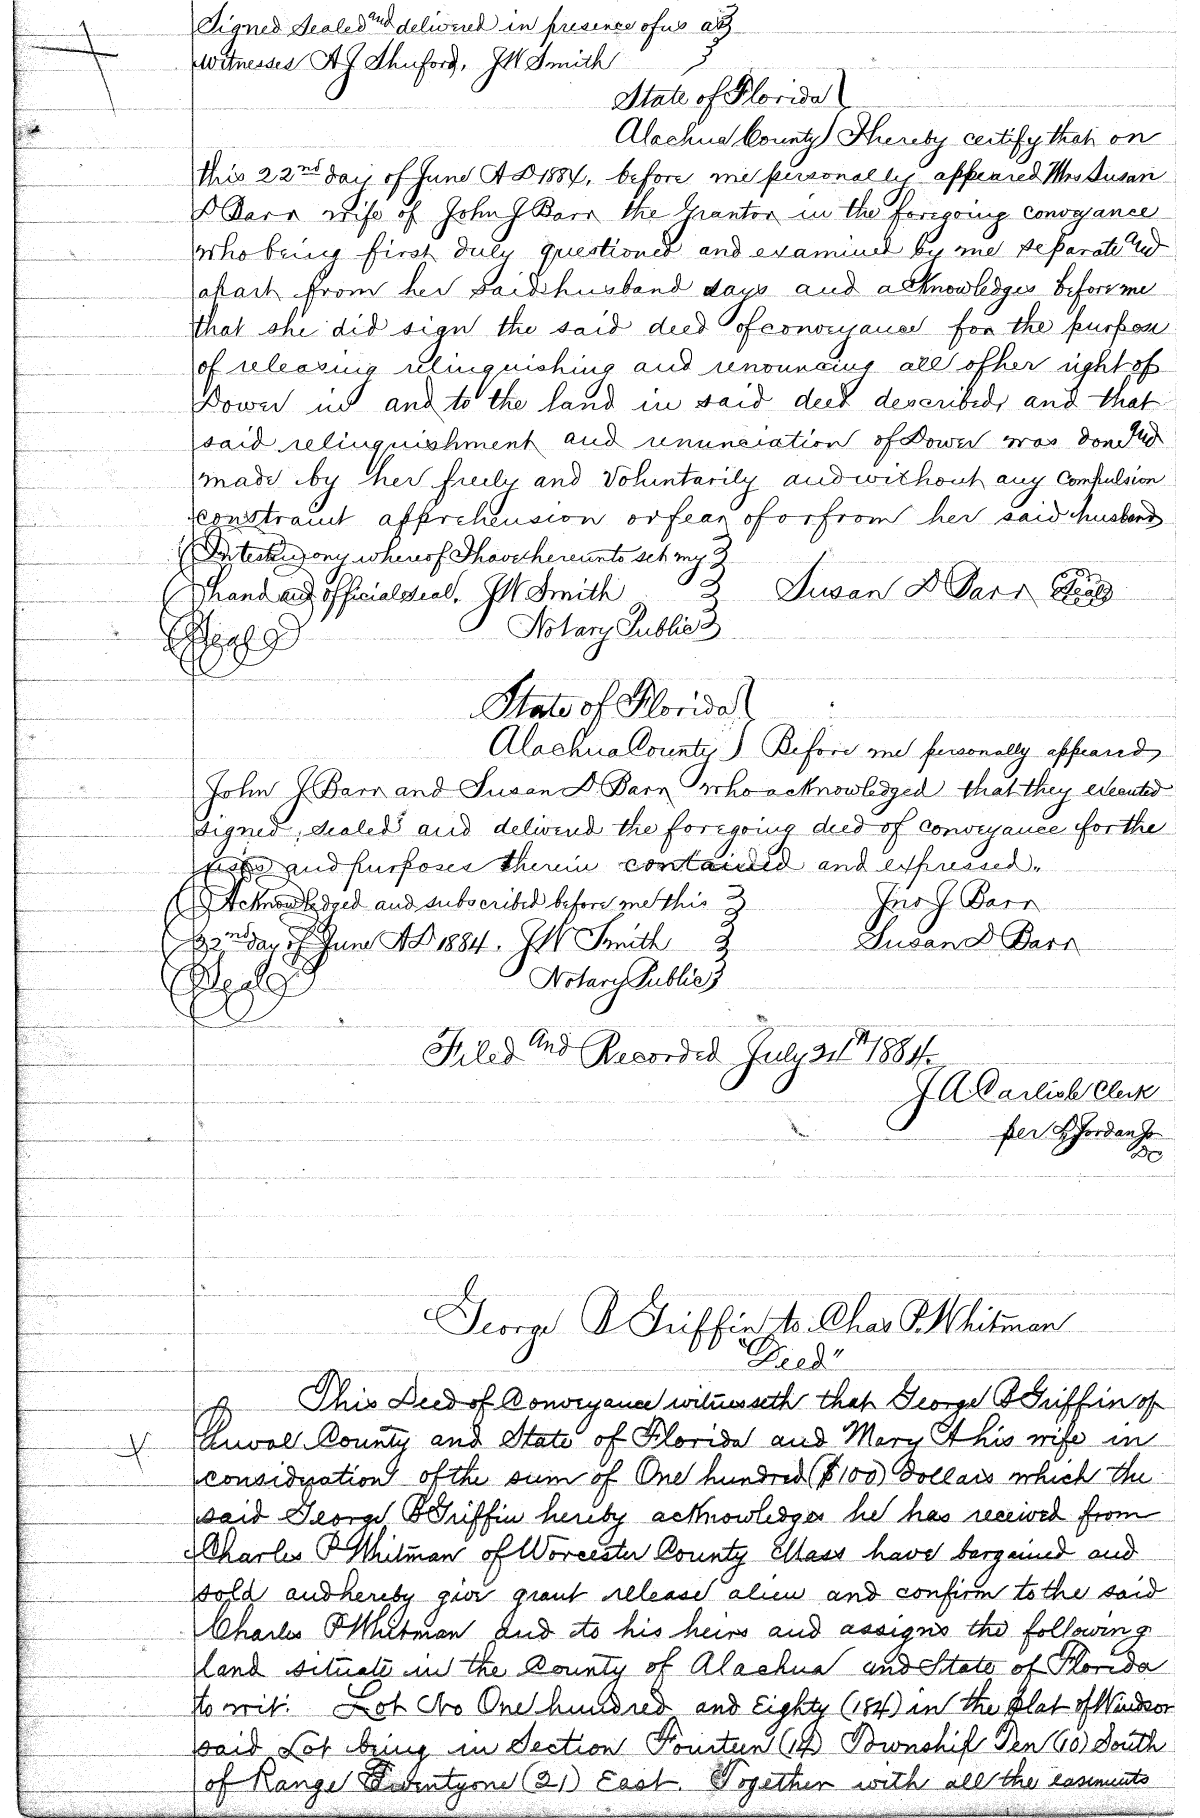 Signed Sealed and delivered in presence of us as
Witnesses A J Shuford, JW Smith
State of Florida
Alachua County I hereby certify that on
this 22nd day of June A D 1884, before me personally appeared Mrs Susan
D Barr wife of John J Barr the Grantor in the foregoing conveyance
who being first duly questioned and examined by me separate and
apart from her said husband says and acknowledges before me
that she did sign the said deed of conveyance for the purpose
of releasing relinquishing and renouncing all of her right of
Dower in and to the land in said deed described, and that
said relinquishment and renunciation of Dower was done and
made by her freely and Voluntarily and without any Compulsion
constraint apprehension or fear of or from her said husband
In testimony whereof I have hereunto set my
hand and official seal. JW Smith Susan D Barr Seal
Seal Notary Public
State of Florida
Alachua County Before me personally appeared
John J Barr and Susan D Barr who acknowledged that they executed
signed, sealed and delivered the foregoing deed of conveyance for the
uses and purposes therein contained and expressed.
Acknowledged and subscribed before me this Jno J Barr
22nd day of June A D 1884. JW Smith Susan D Barr
Seal Notary Public
Filed And Recorded July 1884.
J A Carlisle Clerk
per Jordan Jr
DC
George B Griffin to Chas P. Whitman
"Deed"
This Deed of Conveyance witnesseth that George B Griffin of
Duval County and State of Florida and Mary A his wife in
consideration of the sum of One hundred ($100) Dollars which the
said George B Griffin hereby acknowledges he has received from
Charles P Whitman of Worcester County Mass have bargained and
sold and hereby give grant release alien and confirm to the said
Charles P Whitman and to his heirs and assigns the following
land situate in the County of Alachua and State of Florida
to wit: Lot No One hundred and Eighty (184) in the plat of Windsor
said Lot being in Section Fourteen (14) Township Ten (10) South
of Range Twentyone (21) East. Together with all the easements